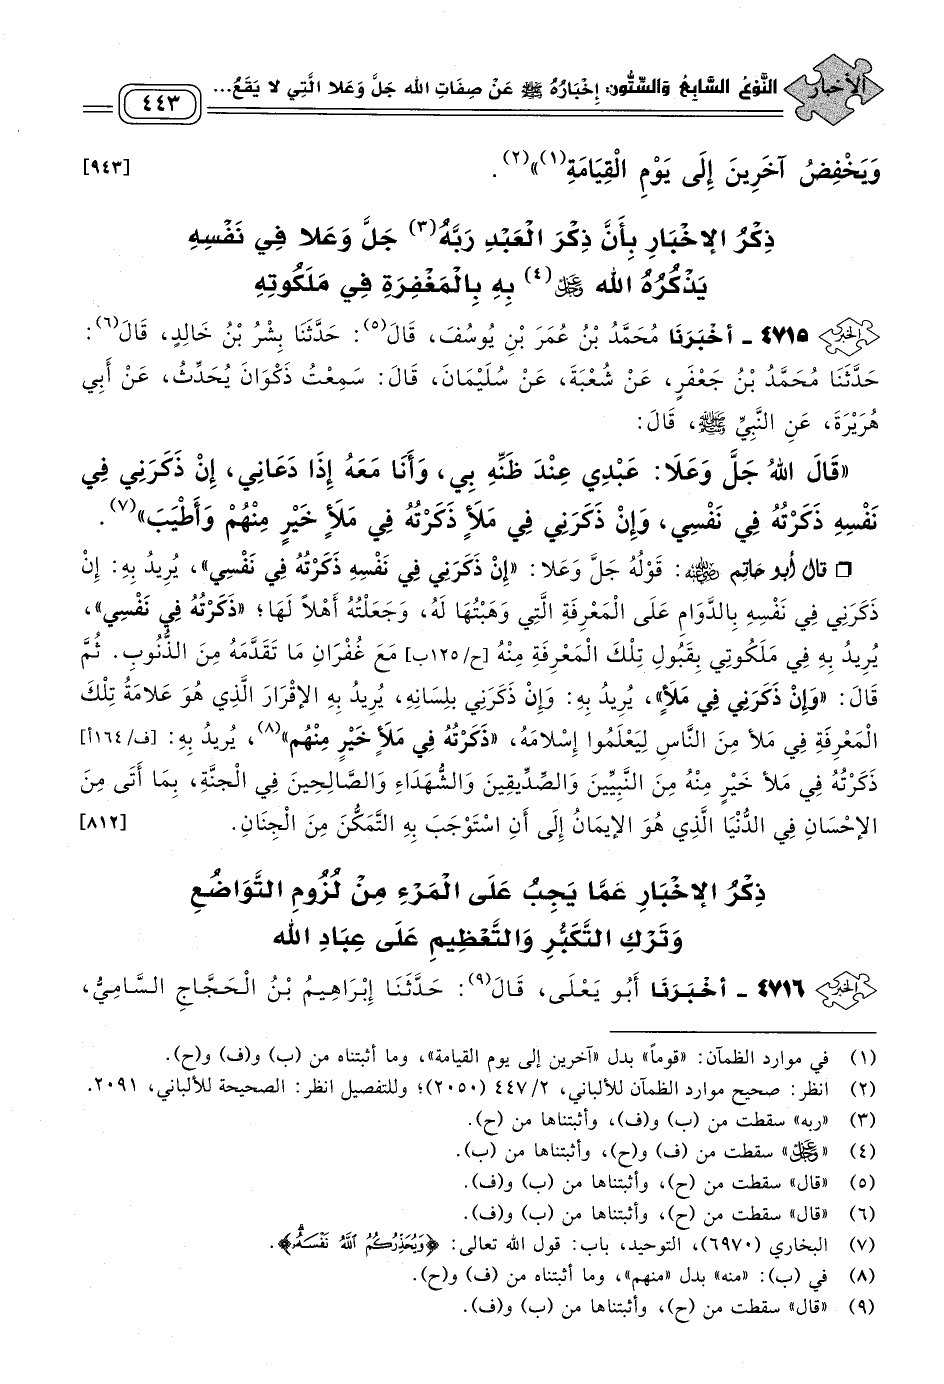 الأخبار
النَّوْعُ السَّابِعُ وَالسِّتُّونَ: إِخْبَارُهُ ﷺ عَنْ صِفَاتِ اللهِ جَلَّ وَعَلا الَّتِي لا يَقَعُ...
٤٤٣
وَيَخْفِضُ آخَرِينَ إِلَى يَوْمِ الْقِيَامَةِ(١)»(٢). [٩٤٣]
ذِكْرُ الإِخْبَارِ بِأَنَّ ذِكْرَ الْعَبْدِ رَبَّهُ(٣) جَلَّ وَعَلا فِي نَفْسِهِ
يَذْكُرُهُ الله عَزَّ وَجَلَّ(٤) بِهِ بِالْمَغْفِرَةِ فِي مَلَكُوتِهِ
٤٧١٥ - أَخْبَرَنَا مُحَمَّدُ بْنُ عُمَرَ بْنِ يُوسُفَ، قَالَ(٥): حَدَّثَنَا بِشْرُ بْنُ خَالِدٍ، قَالَ(٦):
حَدَّثَنَا مُحَمَّدُ بْنُ جَعْفَرٍ، عَنْ شُعْبَةَ، عَنْ سُلَيْمَانَ، قَالَ: سَمِعْتُ ذَكْوَانَ يُحَدِّثُ، عَنْ أَبِي
هُرَيْرَةَ، عَنِ النَّبِيِّ ﷺ، قَالَ:
«قَالَ اللهُ جَلَّ وَعَلَا: عَبْدِي عِنْدَ ظَنِّهِ بِي، وَأَنَا مَعَهُ إِذَا دَعَانِي، إِنْ ذَكَرَنِي فِي
نَفْسِهِ ذَكَرْتُهُ فِي نَفْسِي، وَإِنْ ذَكَرَنِي فِي مَلَأٍ ذَكَرْتُهُ فِي مَلَأٍ خَيْرٍ مِنْهُمْ وَأَطْيَبَ»(٧).
□ قال أبو حاتم رضي الله عنه: قَوْلُهُ جَلَّ وَعَلا: «إِنْ ذَكَرَنِي فِي نَفْسِهِ ذَكَرْتُهُ فِي نَفْسِي»، يُرِيدُ بِهِ: إِنْ
ذَكَرَنِي فِي نَفْسِهِ بِالدَّوَامِ عَلَى الْمَعْرِفَةِ الَّتِي وَهَبْتُهَا لَهُ، وَجَعَلْتُهُ أَهْلاً لَهَا؛ «ذَكَرْتُهُ فِي نَفْسِي»،
يُرِيدُ بِهِ فِي مَلَكُوتِي بِقَبُولِ تِلْكَ الْمَعْرِفَةِ مِنْهُ [ح/١٢٥ب] مَعَ غُفْرَانِ مَا تَقَدَّمَهُ مِنَ الذُّنُوبِ. ثُمَّ
قَالَ: «وَإِنْ ذَكَرَنِي فِي مَلَأٍ»، يُرِيدُ بِهِ: وَإِنْ ذَكَرَنِي بِلِسَانِهِ، يُرِيدُ بِهِ الإِقْرَارَ الَّذِي هُوَ عَلامَةُ تِلْكَ
الْمَعْرِفَةِ فِي مَلأ مِنَ النَّاسِ لِيَعْلَمُوا إِسْلامَهُ، «ذَكَرْتُهُ فِي مَلَأٍ خَيْرٍ مِنْهُم»(٨)، يُرِيدُ بِهِ: [ف/١٦٤أ]
ذَكَرْتُهُ فِي مَلأ خَيْرٍ مِنْهُ مِنَ النَّبِيِّينَ وَالصِّدِّيقِينَ وَالشُّهَدَاءِ وَالصَّالِحِينَ فِي الْجَنَّةِ، بِمَا أَتَى مِنَ
الإِحْسَانِ فِي الدُّنْيَا الَّذِي هُوَ الإِيمَانُ إِلَى أَنِ اسْتَوْجَبَ بِهِ التَّمَكُّنَ مِنَ الْجِنَانِ. [٨١٢]
ذِكْرُ الإِخْبَارِ عَمَّا يَجِبُ عَلَى الْمَرْءِ مِنْ لُزُومِ التَّوَاضُعِ
وَتَرْكِ التَّكَبُّرِ وَالتَّعْظِيمِ عَلَى عِبَادِ الله
٤٧١٦ - أَخْبَرَنَا أَبُو يَعْلَى، قَالَ(٩): حَدَّثَنَا إِبْرَاهِيمُ بْنُ الْحَجَّاجِ السَّامِيُّ،
(١) في موارد الظمآن: «قوماً» بدل «آخرين إلى يوم القيامة»، وما أثبتناه من (ب) و(ف) و(ح).
(٢) انظر: صحيح موارد الظمآن للألباني، ٤٤٧/٢ (٢٠٥٠)؛ وللتفصيل انظر: الصحيحة للألباني، ٢٠٩١.
(٣) «ربه» سقطت من (ب) و(ف)، وأثبتناها من (ح).
(٤) «عَزَّ وَجَلَّ» سقطت من (ف) و(ح)، وأثبتناها من (ب).
(٥) «قال» سقطت من (ح)، وأثبتناها من (ب) و(ف).
(٦) «قال» سقطت من (ح)، وأثبتناها من (ب) و(ف).
(٧) البخاري (٦٩٧٠)، التوحيد، باب: قول الله تعالى: ﴿وَيُحَذِّرُكُمُ اللَّهُ نَفْسَهُ﴾.
(٨) في (ب): «منه» بدل «منهم»، وما أثبتناه من (ف) و(ح).
(٩) «قال» سقطت من (ح)، وأثبتناها من (ب) و(ف).